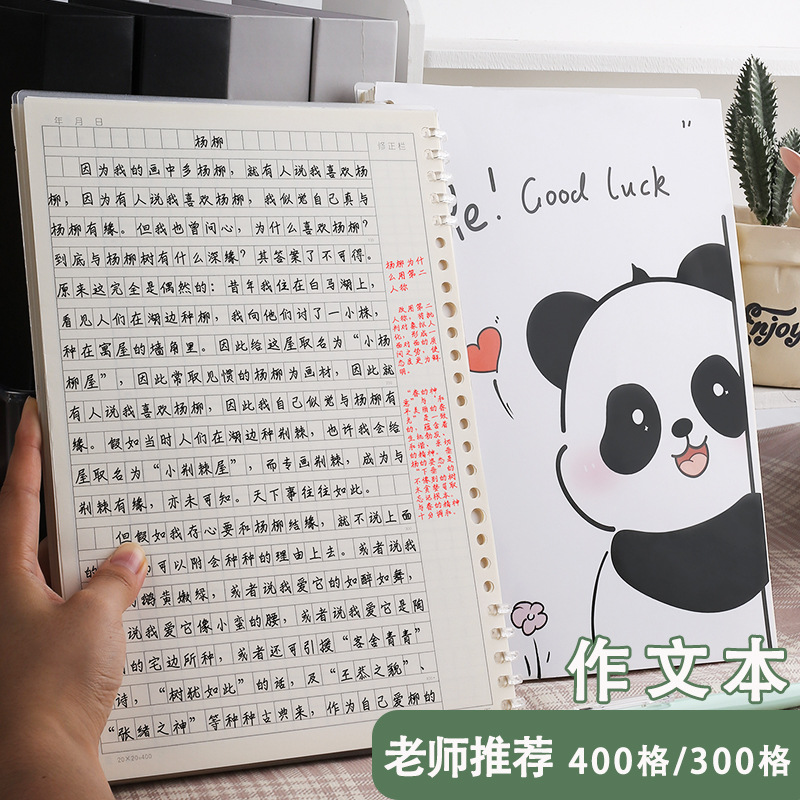 年 月 日
修正栏
杨柳
因为我的画中多杨柳，就有人说我喜欢杨
柳，因为有人说我喜欢杨柳，我似觉自己真与
杨柳有缘。但我也曾问心，为什么喜欢杨柳？
到底与杨柳树有什么深缘？其答案了不可得。
原来这完全是偶然的：昔年我住在白马湖上，
看见人们在湖边种柳，我向他们讨了一小株，
种在寓屋的墙角里。因此给这屋取名为“小杨
柳屋”，因此常取见惯的杨柳为画材，因此就
有人说我喜欢杨柳，因此我自己似觉与杨柳有
缘。假如当时人们在湖边种荆棘，也许我会给
屋取名为“小荆棘屋”，而专画荆棘，成为与
荆棘有缘，亦未可知。天下事往往如此。
但假如我存心要和杨柳结缘，就不说上面
的 可以附会种种的理由上去。或者说我
鹅黄嫩绿，或者说我爱它的如醉如舞，
说我爱它像小蛮的腰，或者说我爱它是陶
的宅边所种，或者还可引援“客舍青青”
诗，“树犹如此”的话，及“王恭之貌”、
“张绪之神”等种种古典来，作为自己爱柳的
20×20=400
杨柳为什
么用第二
人称
改用第二
人称，将批
判对象拟人
化，形成一
面对面的质
问之势，使
态度更为鲜
明。
Good luck
Enjoy
作文本
老师推荐 400格/300格